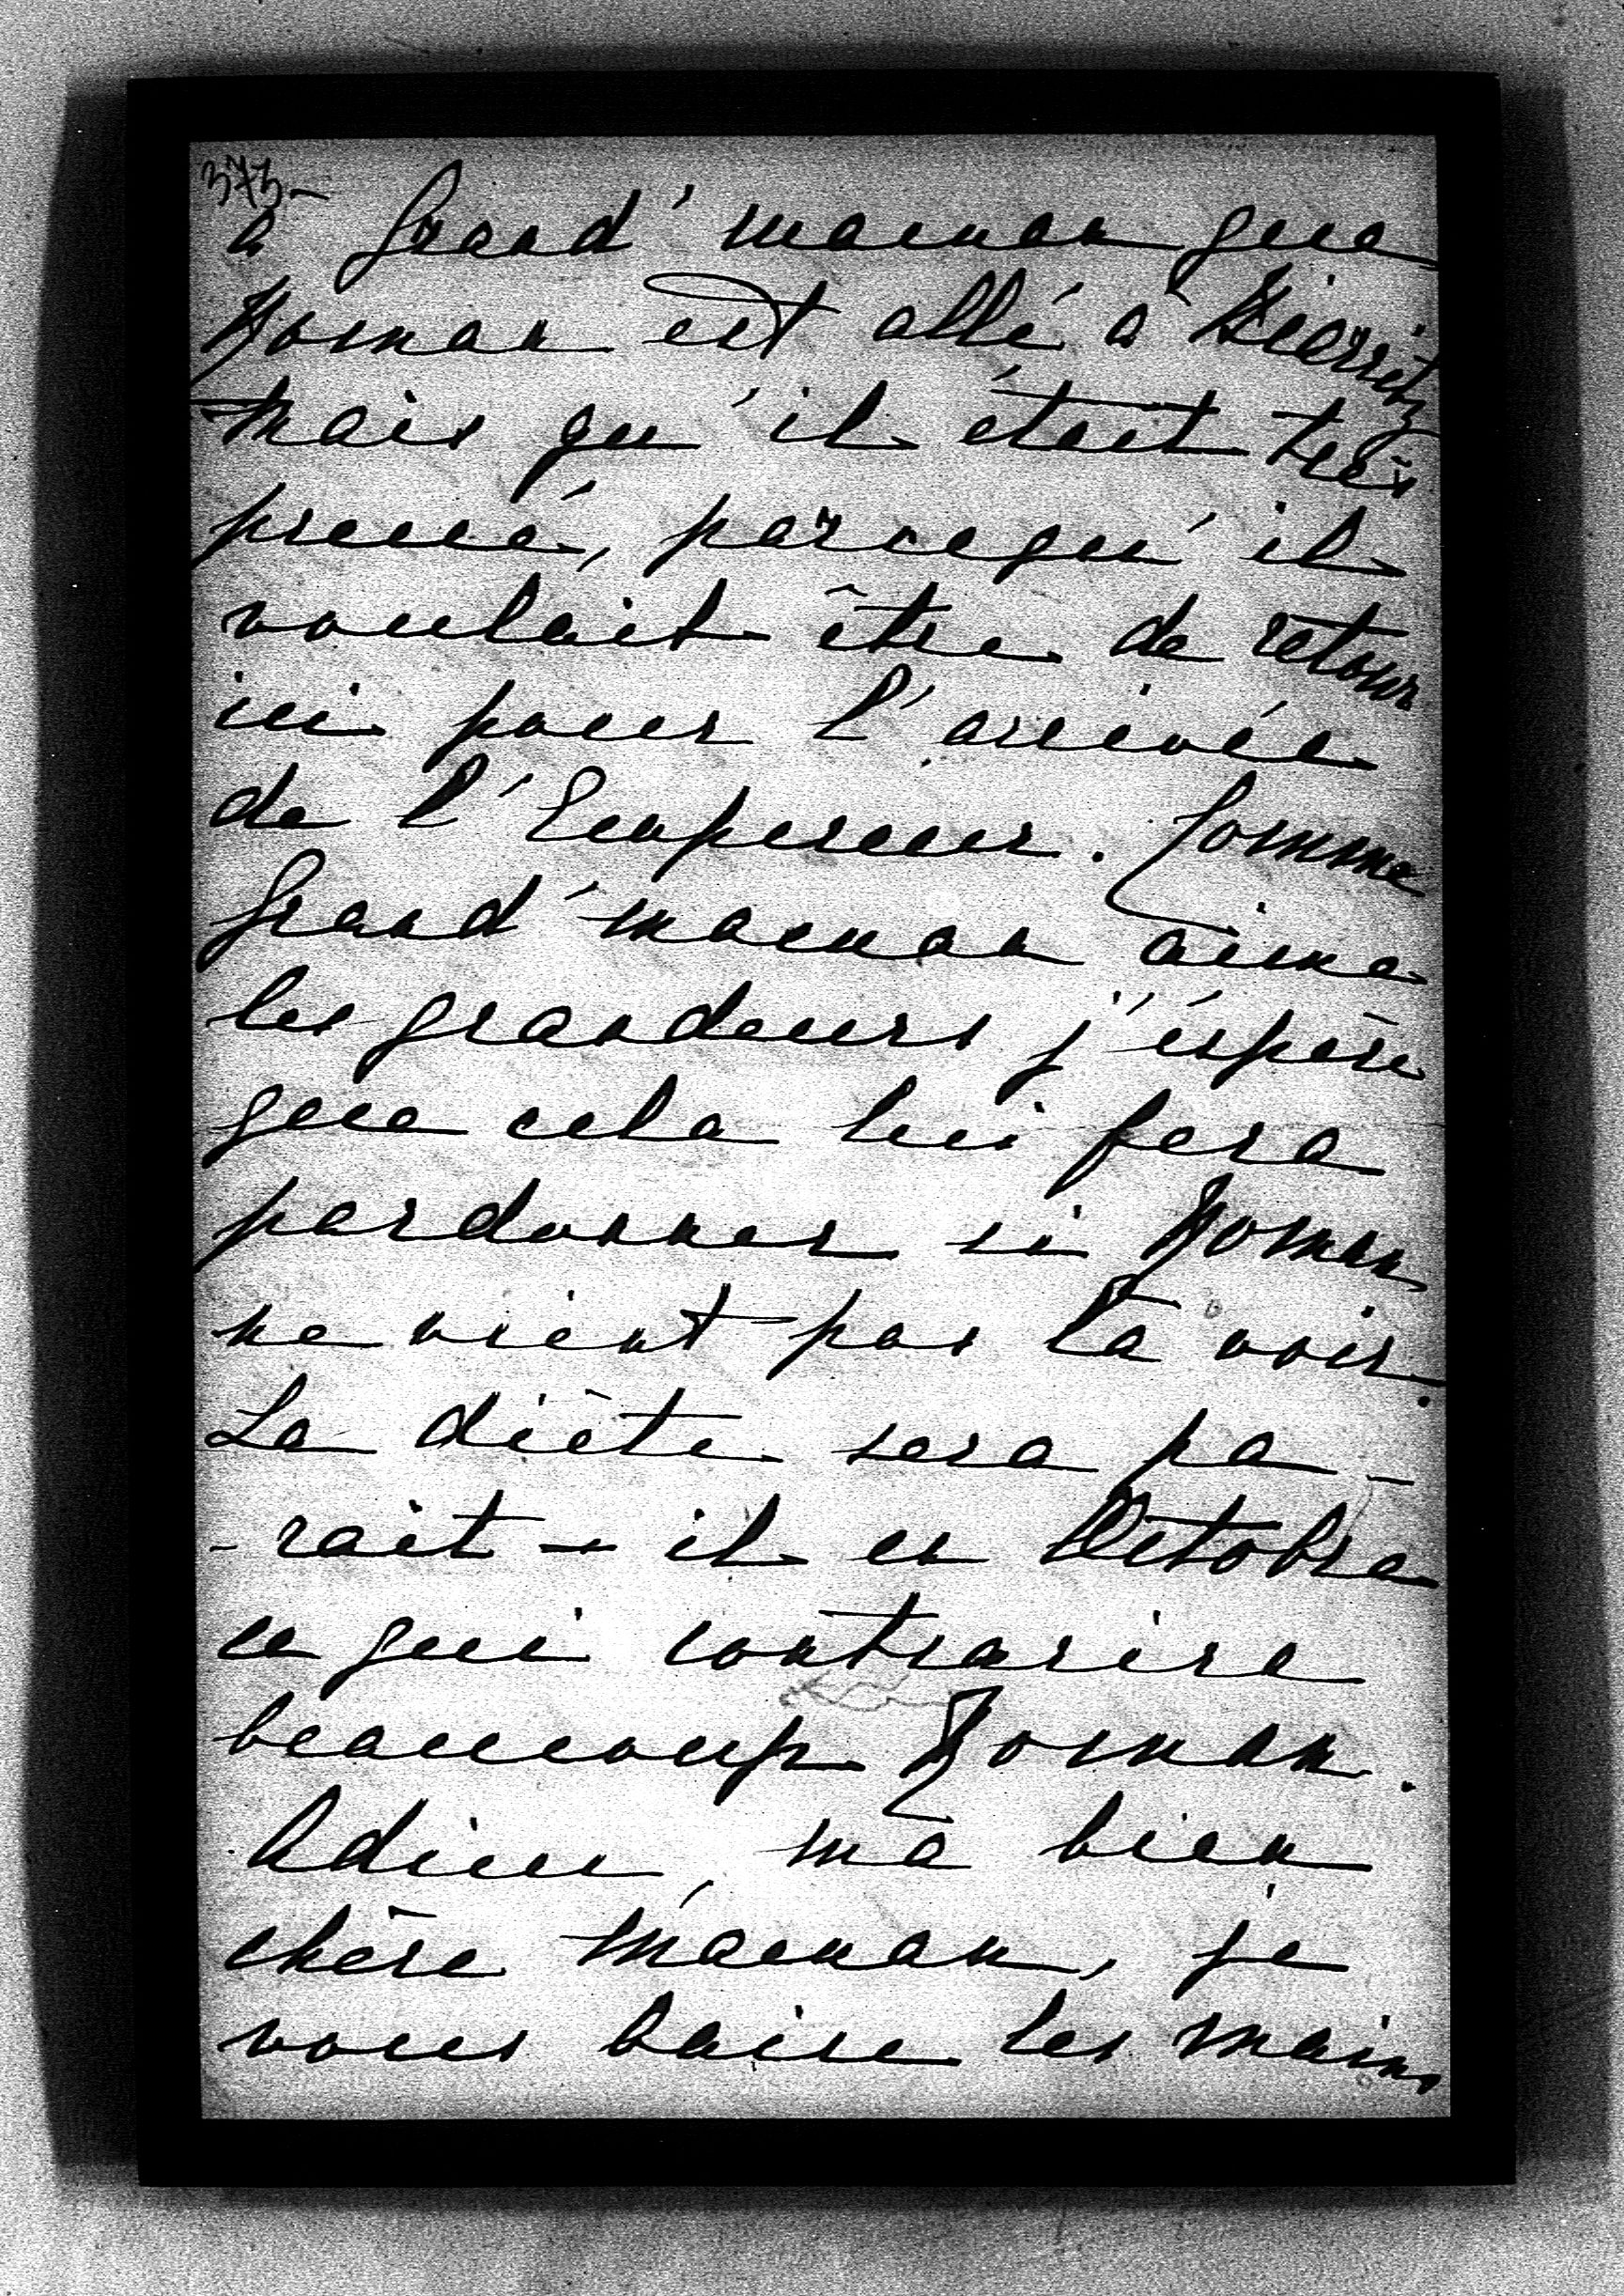 373-
à Grand'maman que
Roman est allé à Biarritz
mais qu'il était très
pressé, parcequ'il
voulait être de retour
ici pour l'arrivée
de l'Empereur. Comme
Grand'maman aime
les grandeurs j'éspère
que cela lui fera
pardonner si Roman
ne vient pas la voir.
La diète sera pa-
-rait-il en Octobre
ce qui contrarire
beaucoup Roman.
Adieu, ma bien
chère Maman, je
vous baise les mains